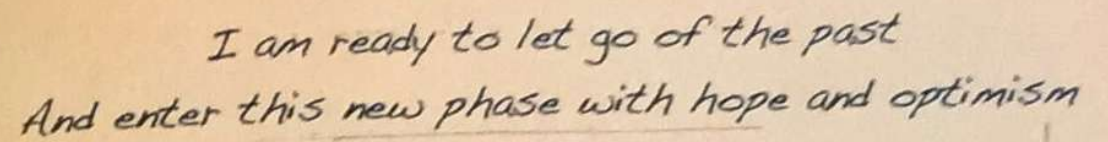 I am ready to let go of the past
And enter this new phase with hope and optimism